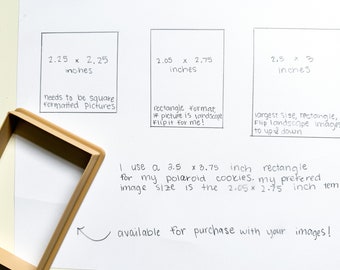 2.25 x 2.25
inches
needs to be square
formatted pictures
2.05 x 2.75
inches
rectangle format
if picture is landscape
flip it for me!
2.5 x 3
inches
largest size, rectangle,
flip landscape images
to up/down
I use a 2.5 x 3.75 inch rectangle
for my polaroid cookies. my prefered
image size is the 2.05 x 2.75 inch tem
available for purchase with your images!